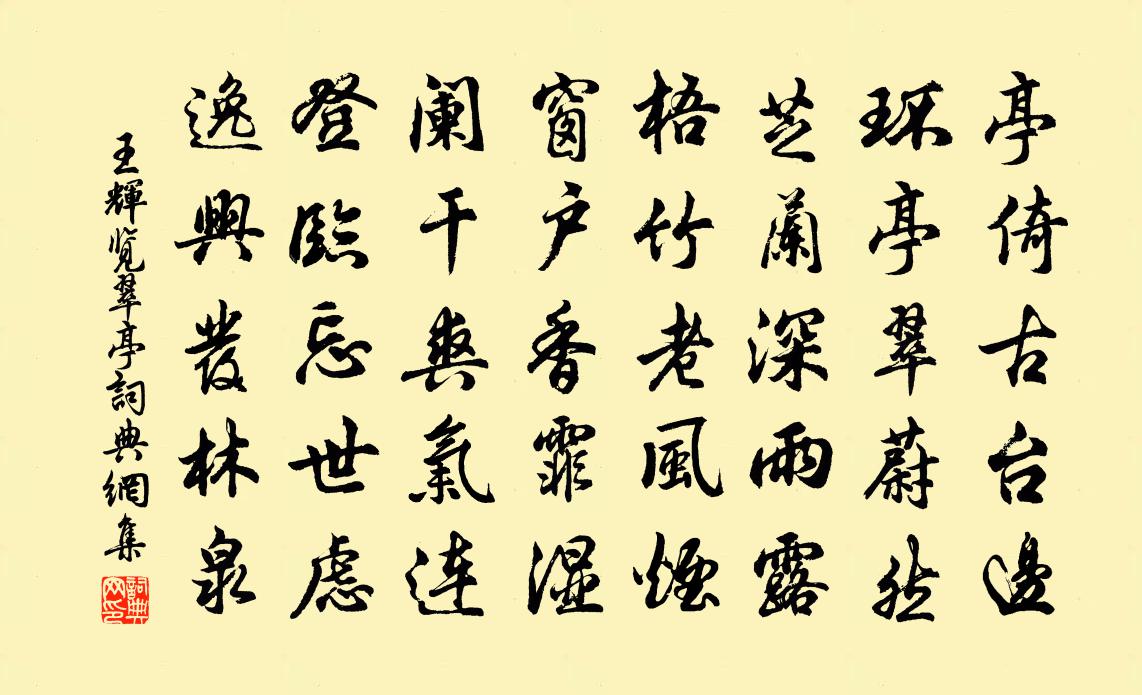 亭倚古台邊
环亭翠蔚然
芝蘭深雨露
梧竹老風煙
窗户香霏湿
阑干爽氣连
登臨忘世虑
逸興發林泉
王輝览翠亭詞典網集
詞典网印